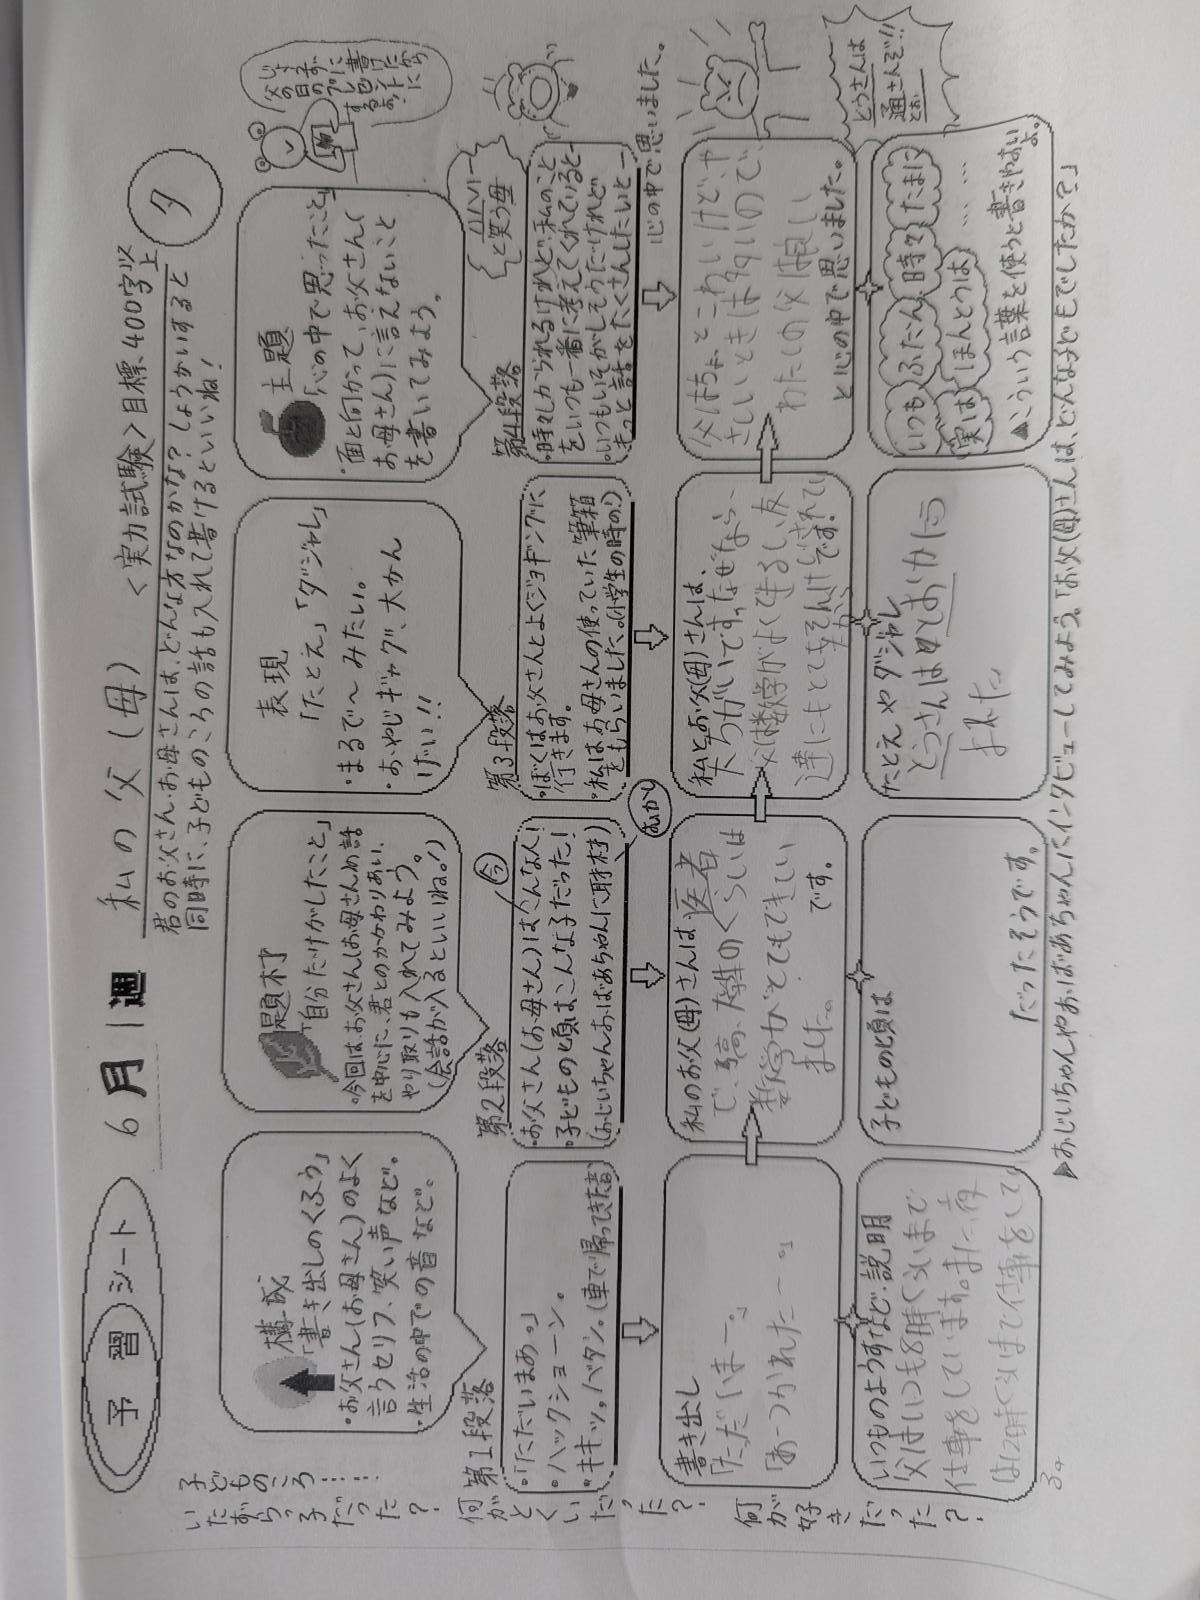 予習シート 6月1週 私の父(母) <実力試験>目標、400字以上 タ
君のお父さん・お母さんは、どんな方なのかな?しょうかいすると
同時に、子どものころの話も入れて書けるといいね!
じょうずに書けたから父の日のプレゼントにするのもいいね
構成
「書き出しのくふう」
・お父さん(お母さん)のよく
言うセリフ、笑い声など。
・生活の中での音など。
題材
「自分だけがしたこと」
・今回は、お父さん(お母さん)の話
を中心に、君とのかかわりあい、
やり取りも入れてみよう。
(会話が入るといいね。!)
表現
「たとえ」「ダジャレ」
・まるで〜みたい。
・おやじギャグ、大かん
げい!!
主題
「心の中で思ったこと」
・面と向かって、お父さん(
お母さん)に言えないこと
を書いてみよう。
子どものころ……
いたずらっ子だった?
何がとくいだった?
何が好きだった?
第1段落
・「ただいまあ。」
・ハックショーン。
・キキッ。バタン。(車で帰ってきた音)
第2段落
今
・お父さん(お母さん)はこんな人!
・子どもの頃はこんな子だった!
(おじいちゃんおばあちゃんに取材)
むかし
第3段落
・ぼくはお父さんとよくジョギングに
行きます。
・私はお母さんの使っていた筆箱
をもらいました。(小学生の時の)
第4段落
ハハハー
と笑う母
・時々しかられるけれど、私のこと
をいつも一番に考えてくれていると―
・いつもいそがしそうだけれど
きっと話をたくさんしたいと―
心の中で思いました。
書き出し
「ただいまー。」
「あーつかれたー。」
私のお父(母)さんは、医者
で、高、大学のくらいは
数学がとてもできてい
ました。
です。
私とお父(母)さんは、
大ちがいです。なぜなら、
父は数学がよくできるし、友
達にもとてもそんけいされてい
たからです!
父はちょっとこわいけど、や
さしいときは多いので、
わたしの父は親しい
と心の中で思いました。
どうさんは
通さんぞ!!
とお
いつものようすなど、説明
父はいつも8時くらいまで
仕事をしています。また、夜
は12時くらいまで仕事をして
子どもの頃は
だったそうです。
たとえ や ダジャレ
とうさんは
おれた
いつも ふだん 時々 たまに
実は ほんとうは ………
▲こういう言葉を使うと書きやすいよ。
▶おじいちゃんやおばあちゃんにインタビューしてみよう。「お父(母)さんは、どんな子どもでしたか?」